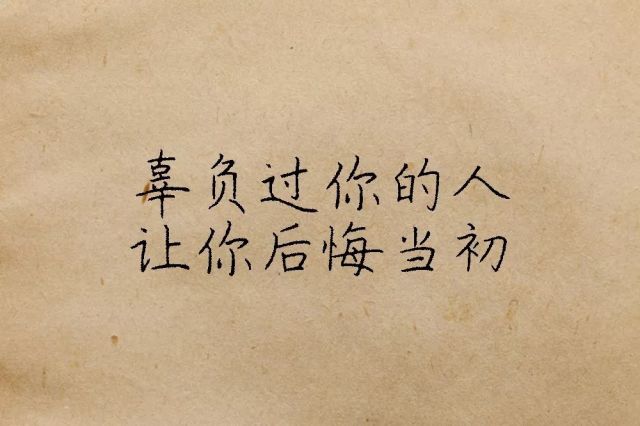 辜负过你的人
让你后悔当初